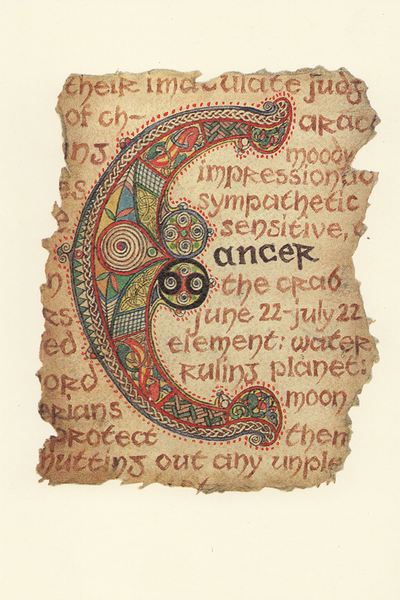 their immaculate judg
of ch- arac
ng moody
impressiona
ss sympathetic
sensitive,
Cancer
h the crab
rs june 22-july 22
ed element: water
ord ruling planet:
erians moon
protect them
hutting out any unple